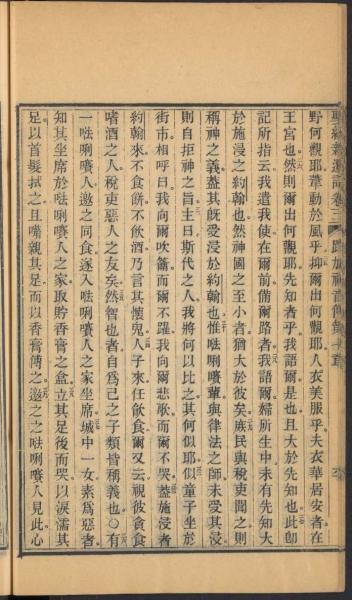 野何觀耶葦動於風乎抑爾出何觀耶人衣美服乎夫衣華居安者在
王宮也然則爾出何觀耶先知者乎我語爾是也且大於先知也此卽
記所指云我遣我使在爾前備爾路者我語爾婦所生中未有先知大
於施浸之約翰也然神國之至小者猶大於彼矣庶民與稅吏聞之則
稱神之義蓋其旣受浸於約翰也惟㕷唎㘔輩與律法之師未受其浸
則自拒神之旨主曰斯代之人我將何以比之其何似耶似童子坐於
街市相呼曰我向爾吹籥而爾不躍我向爾悲歌而爾不哭蓋施浸者
約翰來不食餅不飲酒乃言其懷鬼人子來任飲食爾又云視彼貪食
嗜酒之人稅吏惡人之友矣然智也者自爲己之子類皆稱義也〇有
一㕷唎㘔人邀之同食遂入㕷唎㘔人之家坐席城中一女素爲惡者
知其坐席於㕷唎㘔人之家取貯香膏之盒立其足後而哭以淚濡其
足以首髮拭之且嘴親其足而以香膏傅之邀之之㕷唎㘔人見此心